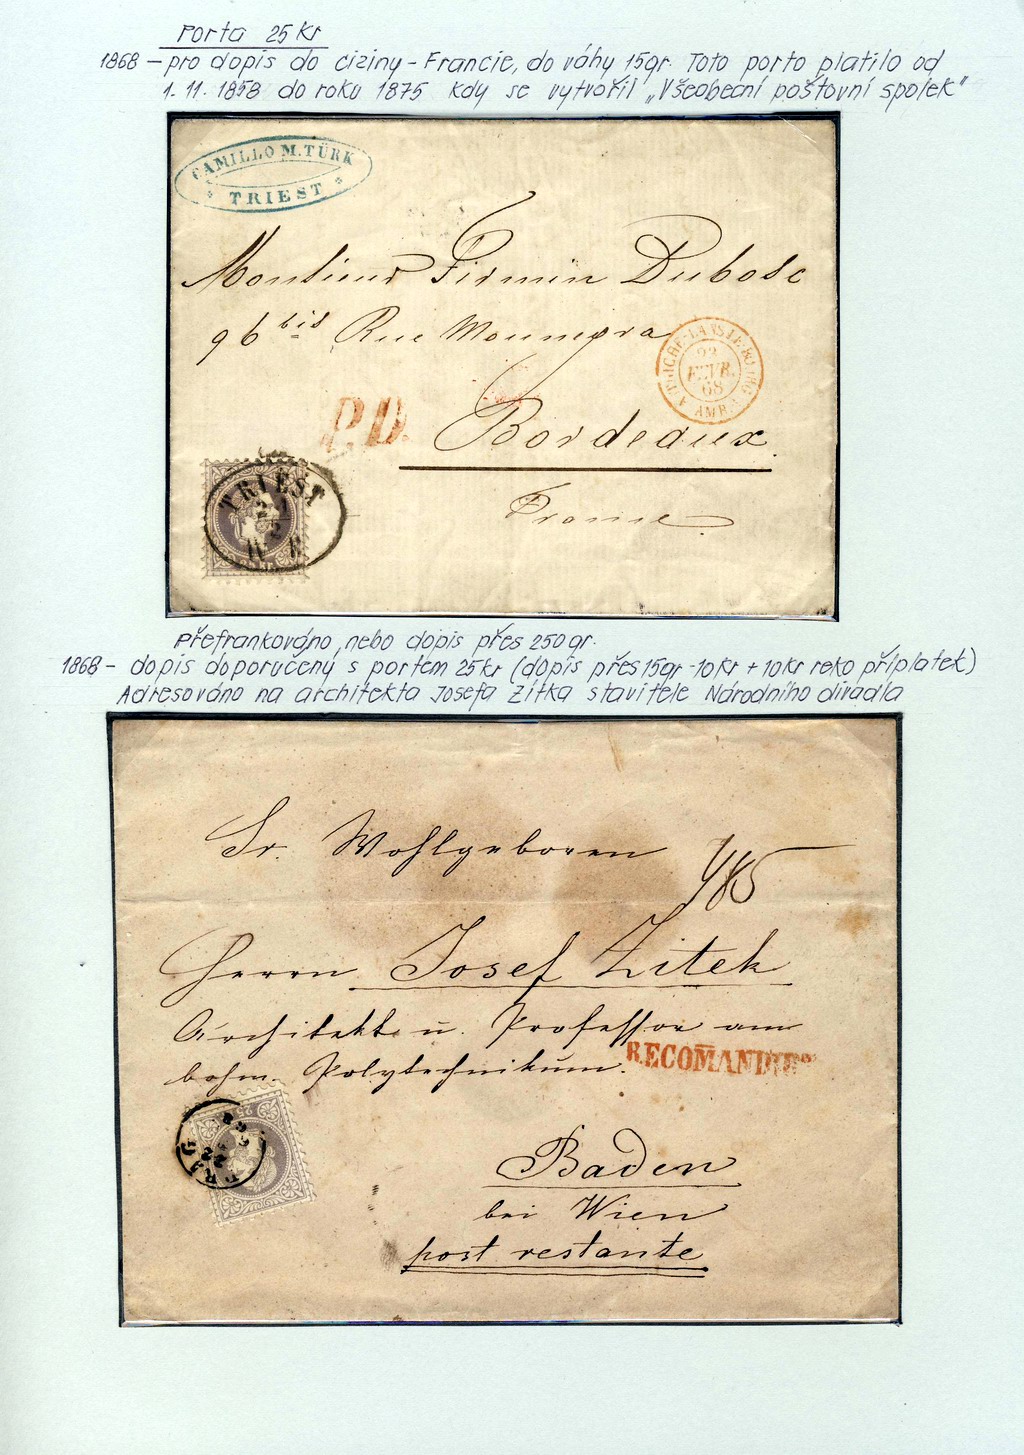 Porta 25 kr
1868 – pro dopis do ciziny – Francie, do váhy 15gr. Toto porto platilo od
1. 11. 1858 do roku 1875 kdy se vytvořil „Všeobecní poštovní spolek"
CAMILLO M. TÜRK
TRIEST
Monsieur Firmin Dubosc
96 bis Rue Mouneyra
22
FEVR.
68
P.D.
Bordeaux.
TRIEST
France
Přefrankováno, nebo dopis přes 250gr.
1868 – dopis doporučený s portem 25kr (dopis přes 15gr - 10kr + 10kr reko příplatek)
Adresováno na architekta Josefa Zítka stavitele Národního divadla
Sr. Wohlgeboren
Herrn Josef Zitek
Architekt u. Professor am
böhm. Polytechnikum.
RECOMANDIRT
25
PRAG
Baden
bei Wien
post restante